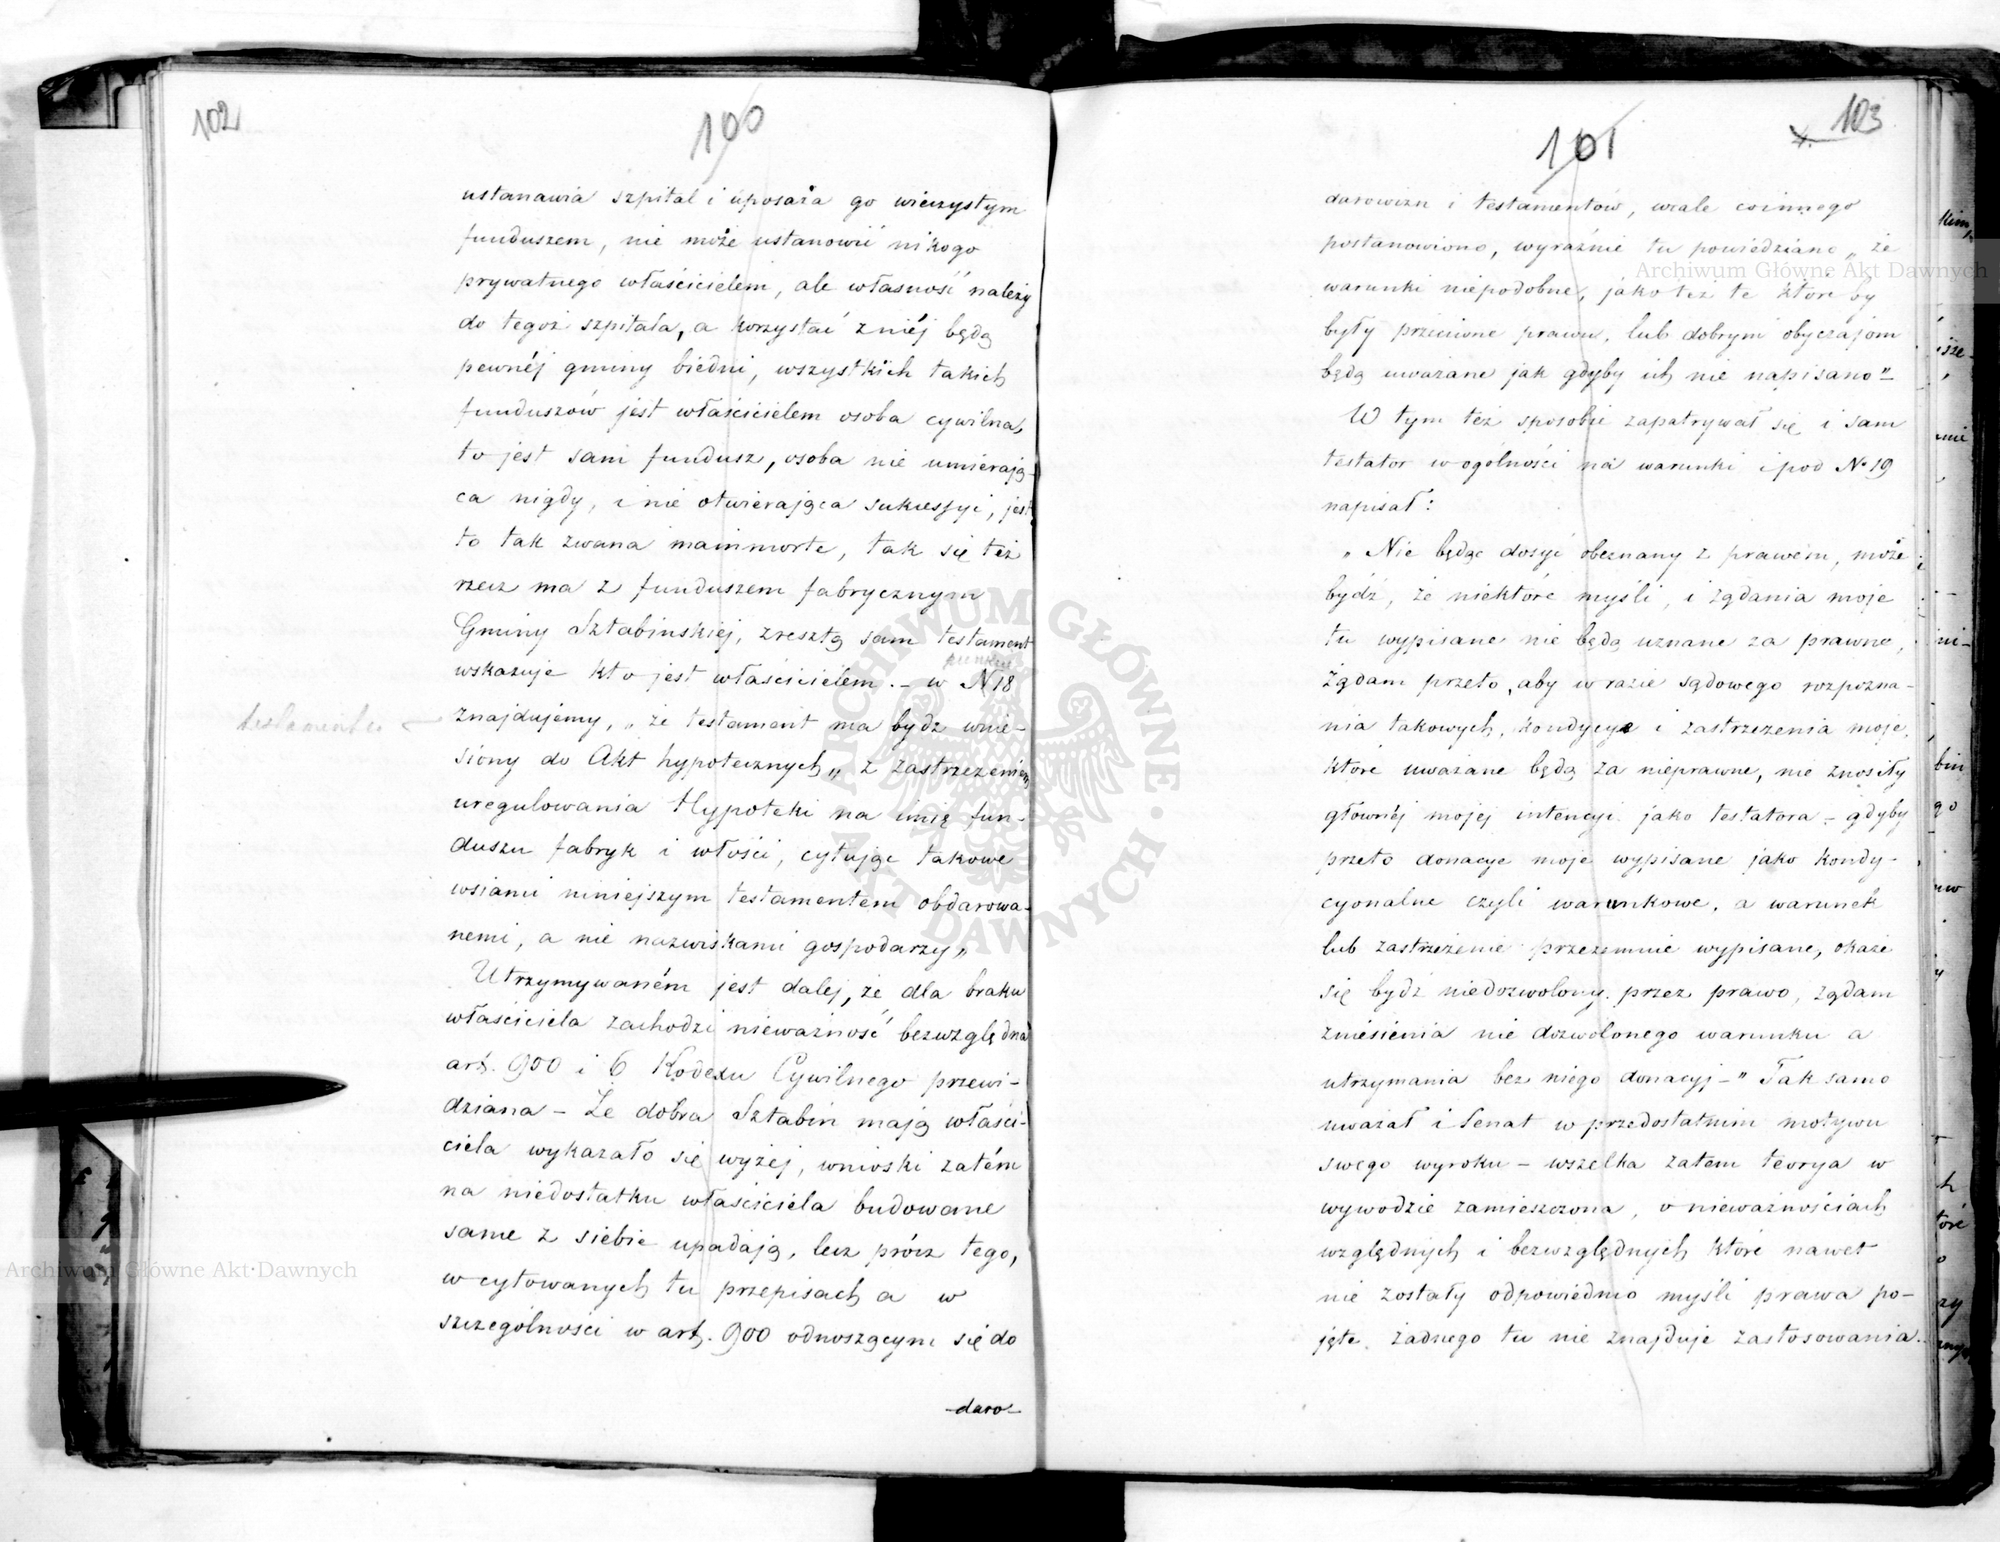 102
100
ustanawia szpital i uposaża go wieczystym
funduszem, nie może ustanowić nikogo
prywatnego właścicielem, ale własność należy
do tegoż szpitala, a korzystać z niéj będą
pewnéj gminy biedni, wszystkich takich
funduszów jest właścicielem osoba cywilna,
to jest sam fundusz, osoba nie umierają-
ca nigdy, i nie otwierająca sukcessyi, jest
to tak zwana mainmorte, tak się też
rzecz ma z funduszem fabrycznym
Gminy Sztabinskiej, zresztą sam testament
wskazuje kto jest właścicielem. – w punkcie N 18
testamentu
znajdujemy, „że testament ma bydź wnie-
siony do Akt hypotecznych „ z zastrzeżeniem
uregulowania Hypoteki na imię fun-
duszu fabryk i włości, cytując takowe
wsiami niniejszym testamentem obdarowa-
nemi, a nie nazwiskami gospodarzy„
Utrzymywaném jest dalej, że dla braku
właściciela zachodzi nieważność bezwzględna
art. 900 i 6 Kodexu Cywilnego przewi-
dziana – Że dobra Sztabin mają właści-
ciela wykazało się wyżej, wnioski zatém
na niedostatku właściciela budowane
same z siebie upadają, lecz prócz tego,
w cytowanych tu przepisach a w
szczególności w art. 900 odnoszącym się do
daro-
103
101
darowizn i testamentów, wcale co innego
postanowiono, wyraźnie tu powiedziano „że
warunki niepodobne, jako też te któreby
były przeciwne prawu, lub dobrym obyczajom
będą uważane jak gdyby ich nie napisano"–
W tym też sposobie zapatrywał się i sam
testator w ogólności na warunki i pod № 19
napisał:
„Nie będąc dosyć obeznany z prawem, może
bydź, że niektóre myśli, i żądania moje
tu wypisane nie będą uznane za prawne,
Żądam przeto, aby w razie sądowego rozpozna-
nia takowych, kondycye i zastrzeżenia moje,
które uważane będą za nieprawne, nie znosiły
głównéj mojej intencyi jako testatora – gdyby
przeto donacye moje wypisane jako kondy-
cyonalne czyli warunkowe, a warunek
lub zastrzeżenie przezemnie wypisane, okaże
się bydź niedozwolony przez prawo, żądam
zniesienia nie dozwolonego warunku a
utrzymania bez niego donacyj –" Tak samo
uważał i Senat w przedostatnim motywu
swego wyroku – wszelka zatem teorya w
wywodzie zamieszczona, o nieważnościach
względnych i bezwzględnych które nawet
nie zostały odpowiednio myśli prawa po-
jęte, żadnego tu nie znajduje zastosowania.
Archiwum Główne Akt Dawnych
Archiwum Główne Akt Dawnych
ARCHIWUM GŁÓWNE AKT DAWNYCH